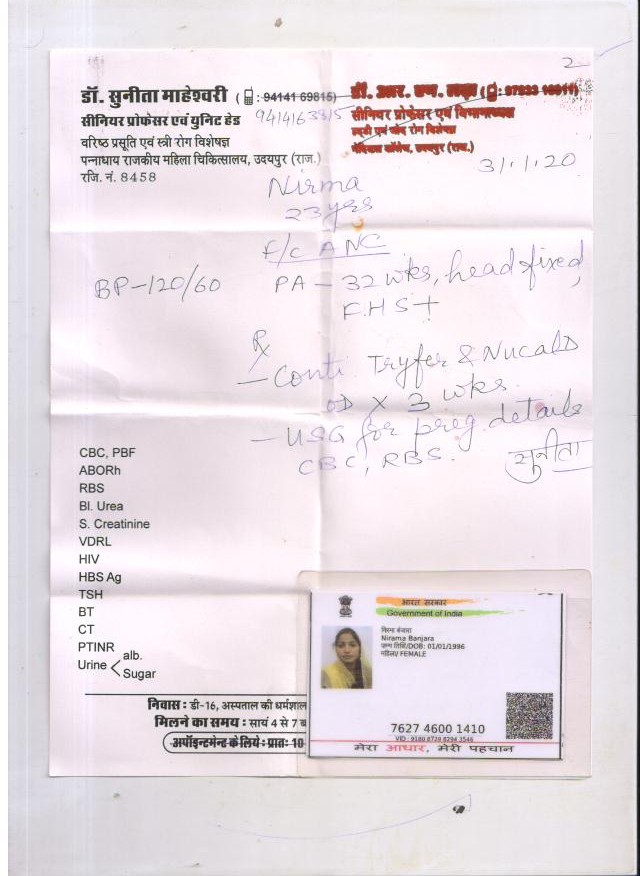 2
डॉ. सुनीता माहेश्वरी (: 94141 69815)
सीनियर प्रोफेसर एवं यूनिट हेड
वरिष्ठ प्रसूति एवं स्त्री रोग विशेषज्ञ
पन्नाधाय राजकीय महिला चिकित्सालय, उदयपुर (राज.)
रजि. नं. 8458
डॉ. आर. एन.
सीनियर प्रोफेसर एवं विभागाध्यक्ष
मेडिकल कॉलेज, उदयपुर (राज.)
31.1.20
Nirma
23 yrs
F/C ANC
BP-120/60
PA - 32 wks, head fixed,
FHS +
Rx
- Conti Tryfer & Nucals
OD x 3 wks.
- USG for preg details
CBC, RBS.
सुनीता
CBC, PBF
ABORh
RBS
Bl. Urea
S. Creatinine
VDRL
HIV
HBS Ag
TSH
BT
CT
PTINR
Urine < alb.
Sugar
निवास : डी-16, अस्पताल की
मिलने का समय : सायं 4 से 7
अपॉइन्टमेन्ट के लिये : प्रातः 10
भारत सरकार
Government of India
निरमा बंजारा
Nirama Banjara
जन्म तिथि/DOB: 01/01/1996
महिला/ FEMALE
7627 4600 1410
मेरा आधार, मेरी पहचान